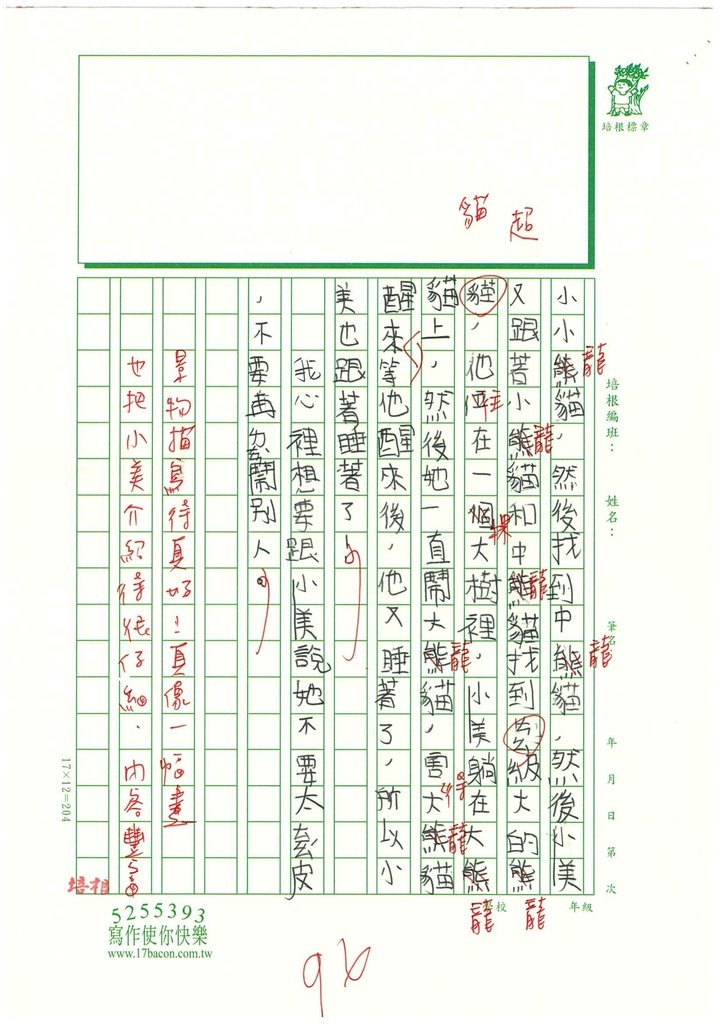 培根標章
貓
超
培根編班：
姓名：
筆名
年 月 日 第 次
校
年級
小小熊貓，然後找到中熊貓，然後小美
又跟著小熊貓和中熊貓找到級大的熊
貓，他在一個大樹裡，小美躺在大熊
貓上，然後她一直鬧大熊貓，害大熊貓
醒來等他醒來後，他又睡著了，所以小
美也跟著睡著了！
我心裡想要跟小美說她不要太皮
，不要再鬧別人。
龍
龍
龍
龍
龍
龍
龍
龍
住
棵
景物描寫得真好！真像一幅畫
也把小美介紹得很仔細，內容豐富
17×12=204
培根
5255393
寫作使你快樂
www.17bacon.com.tw